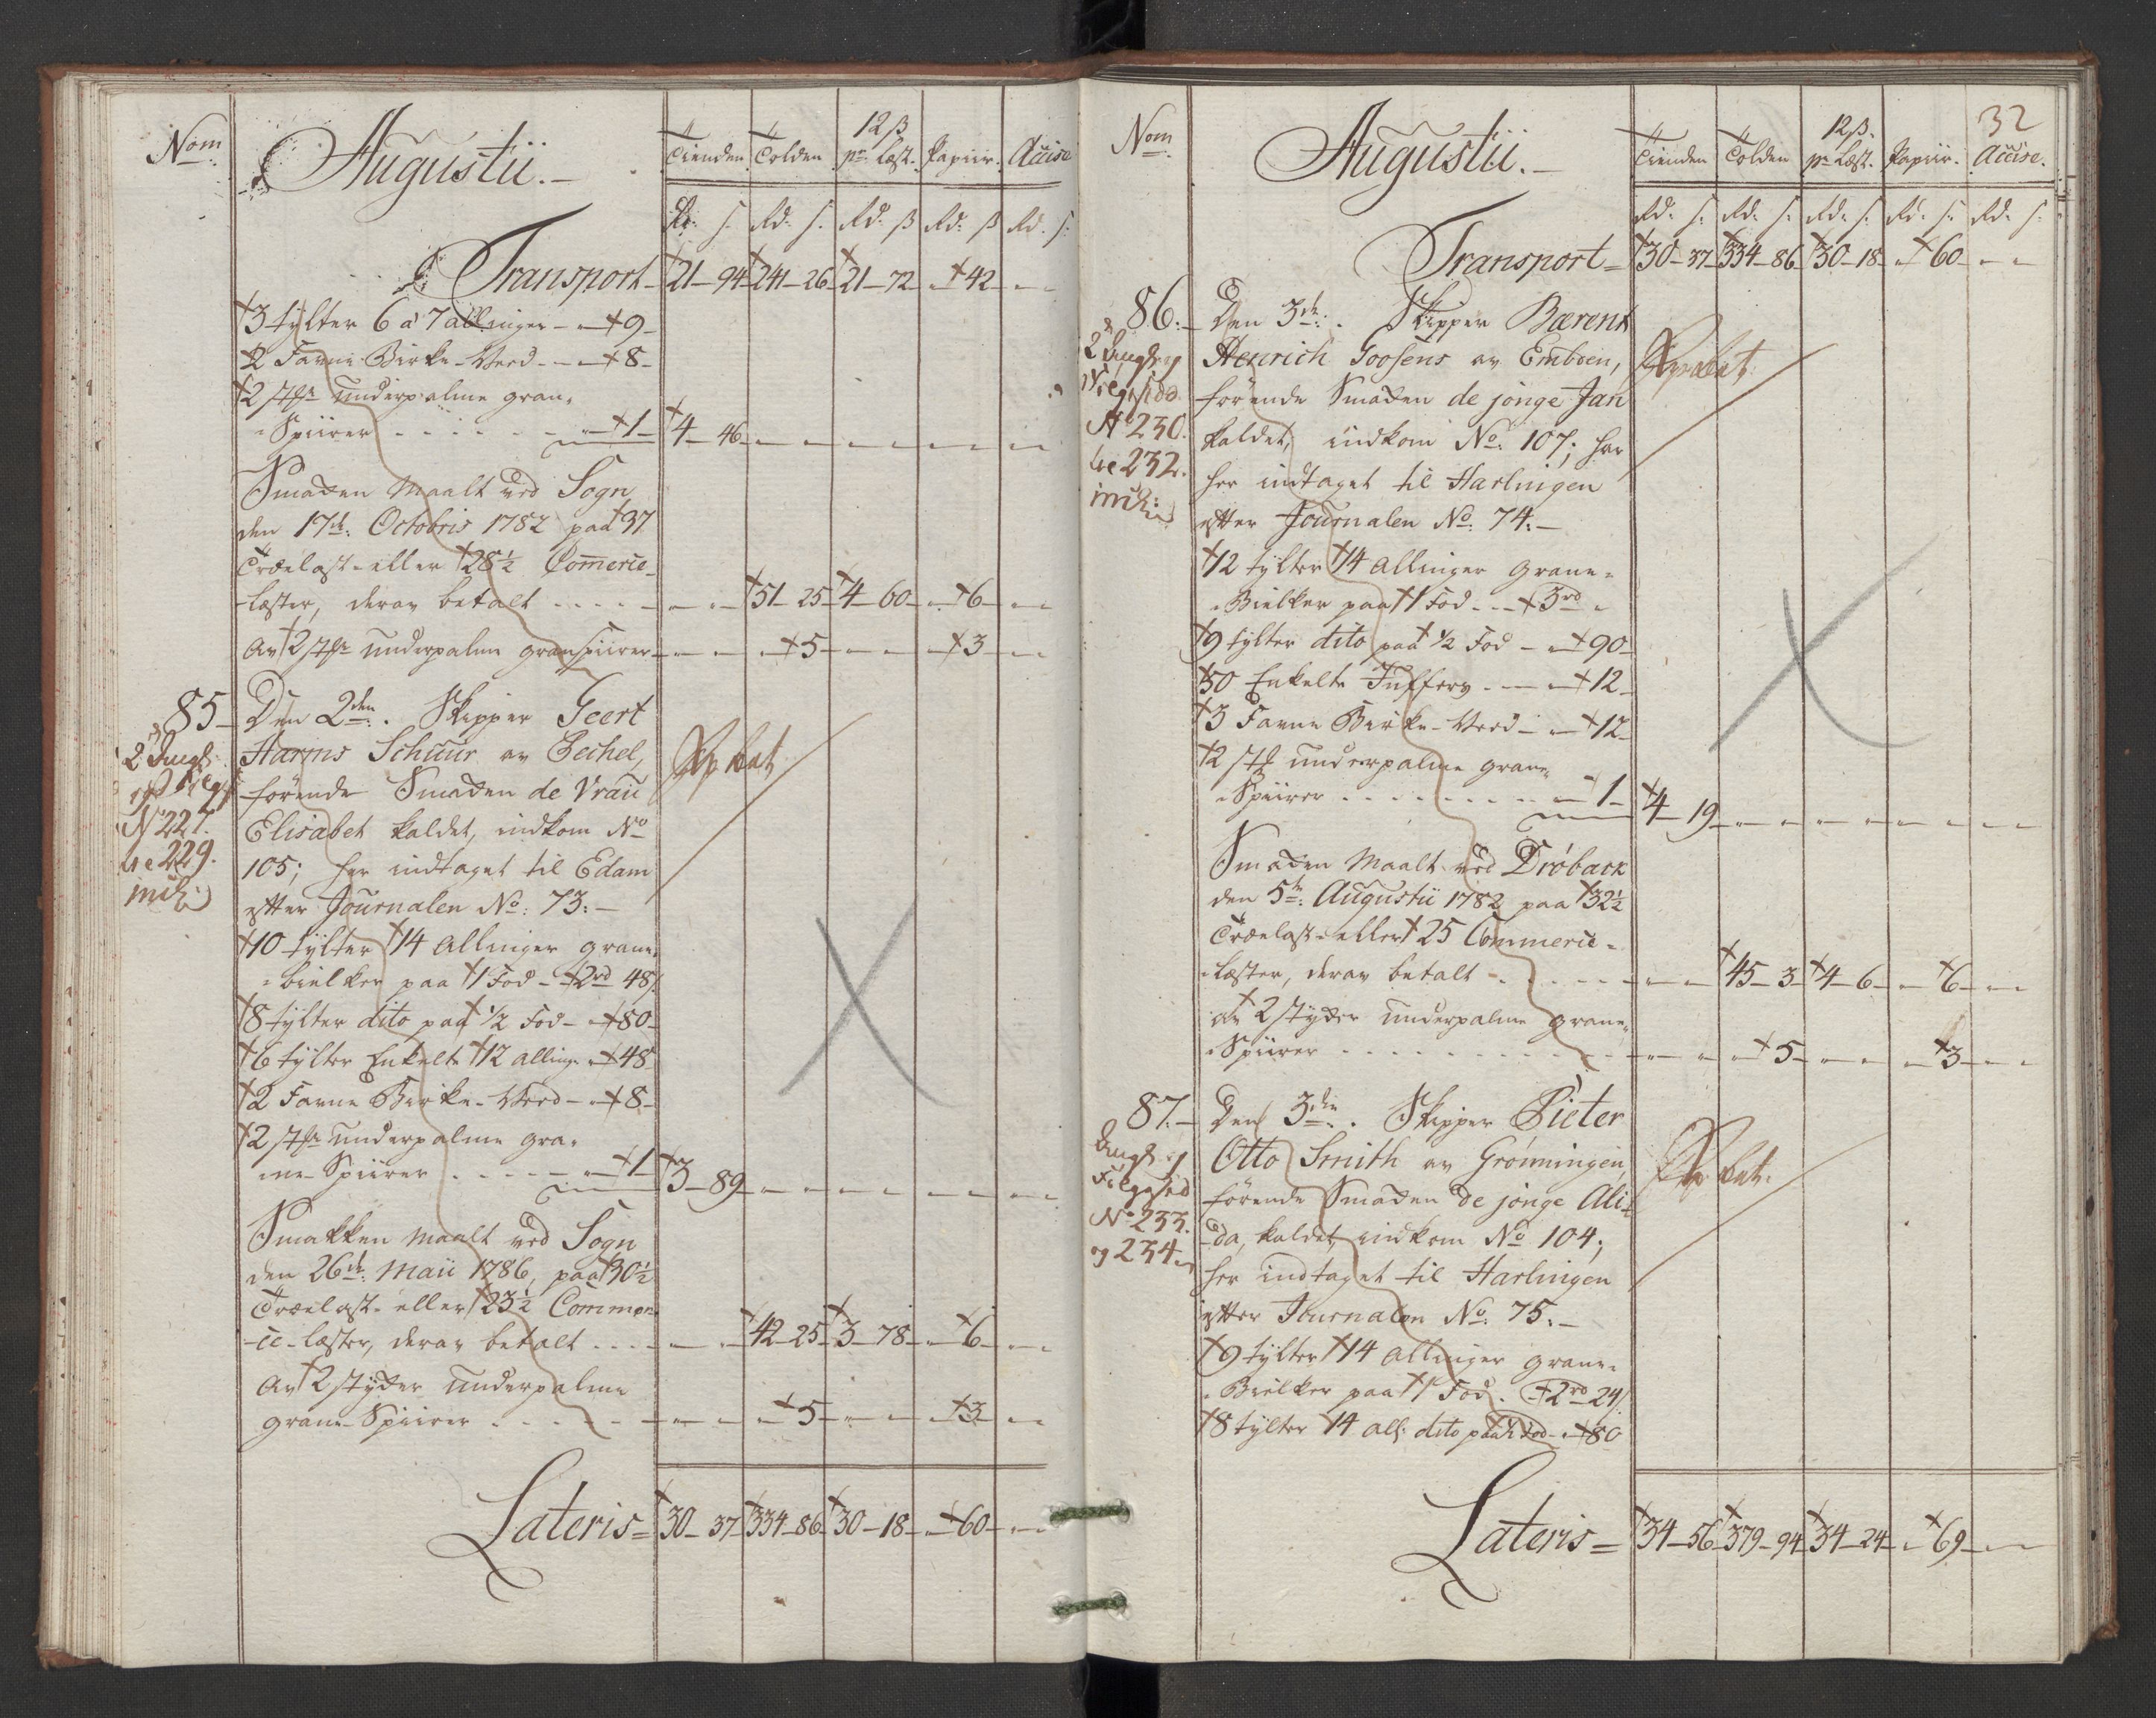 Nom
Augustii.
Tienden Tolden 12 ß pr: Læst. Papiir. Accise
Rd: s. Rd: s. Rd: ß Rd: ß Rd. s:
Transport 21-94 241-26 21-72 42
3 tylter 6 a 7 allinger - 9
2 Favne Birke-Veed - 8
2 stkr underpalme gran-
Spiirer - 1 4-46
Smakken Maalt ved Sogn
den 17de: Octobris 1782 paa 37
Trælast- eller 28½ Com̄ercie-
-læster, derav betalt 51-25 4-60 6
av 2 stkr underpalme granspiirer 5 3
85 Den 2den. Skipper Geert
Harms Schuur av Pechel,
førende Smakken de Vrau
Elisabet kaldet, indkom No
105; her indtaget til Edam
efter Journalen No: 73.
N 227.
229.
10 tylter 14 allinger grane
bielker paa 1 Fod - 2 rd 48 s
8 tylter dito paa ½ Fod - 80
6 tylter Enkelte 12 alling. 48
2 Favne Birke-Veed - 8
2 stkr underpalme gra-
ne Spiirer - 1 3-89
Smakken Maalt ved Sogn
den 26de: Maii 1786, paa 30½
Trælast- eller 23½ Commer-
-cie-læster, derav betalt 42-25 3-78 6
Av 2 stykker underpalme
grane Spiirer 5 3
Lateris 30-37 334-86 30-18 60
32
Nom
Augustii.
Tienden Tolden 12 ß. pr Læst. Papiir. Accise.
Rd: s: Rd: s: Rd: s: Rd: s: Rd: s:
Transport 30-37 334-86 30-18 60
86. Den 3de: Skipper Bærent
Henrich Goosens av Embden,
førende Smakken de jonge Jan
kaldet, indkom No: 107; har
her indtaget til Harlingen
efter Journalen No: 74.
No 230.
232.
12 tylter 14 allinger grane-
Bielker paa 1 Fod - 3 rd
9 tylter dito paa ½ Fod - 90
50 Enkelte Juffers - 12
3 Favne Birke-Veed - 12
2 stk underpalme grane-
Spiirer - 1 4-19
Smakken Maalt ved Drøback
den 5te: Augustii 1782 paa 32½
Trælast- eller 25 Commercie-
læster, derav betalt 45-3 4-6 6
av 2 stykker underpalme grane-
Spiirer 5 3
87. Den 3die. Skipper Pieter
Otto Smith av Grønningen,
førende Smakken de jonge Ali-
da, kaldet, indkom No 104;
her indtaget til Harlingen
efter Journalen No: 75.
No 233.
og 234
9 tylter 14 allinger grane-
Bielker paa 1 Fod. 2 rd 24 s
8 tylter 14 all: dito paa ½ Fod - 80
Lateris 34-56 379-94 34-24 69